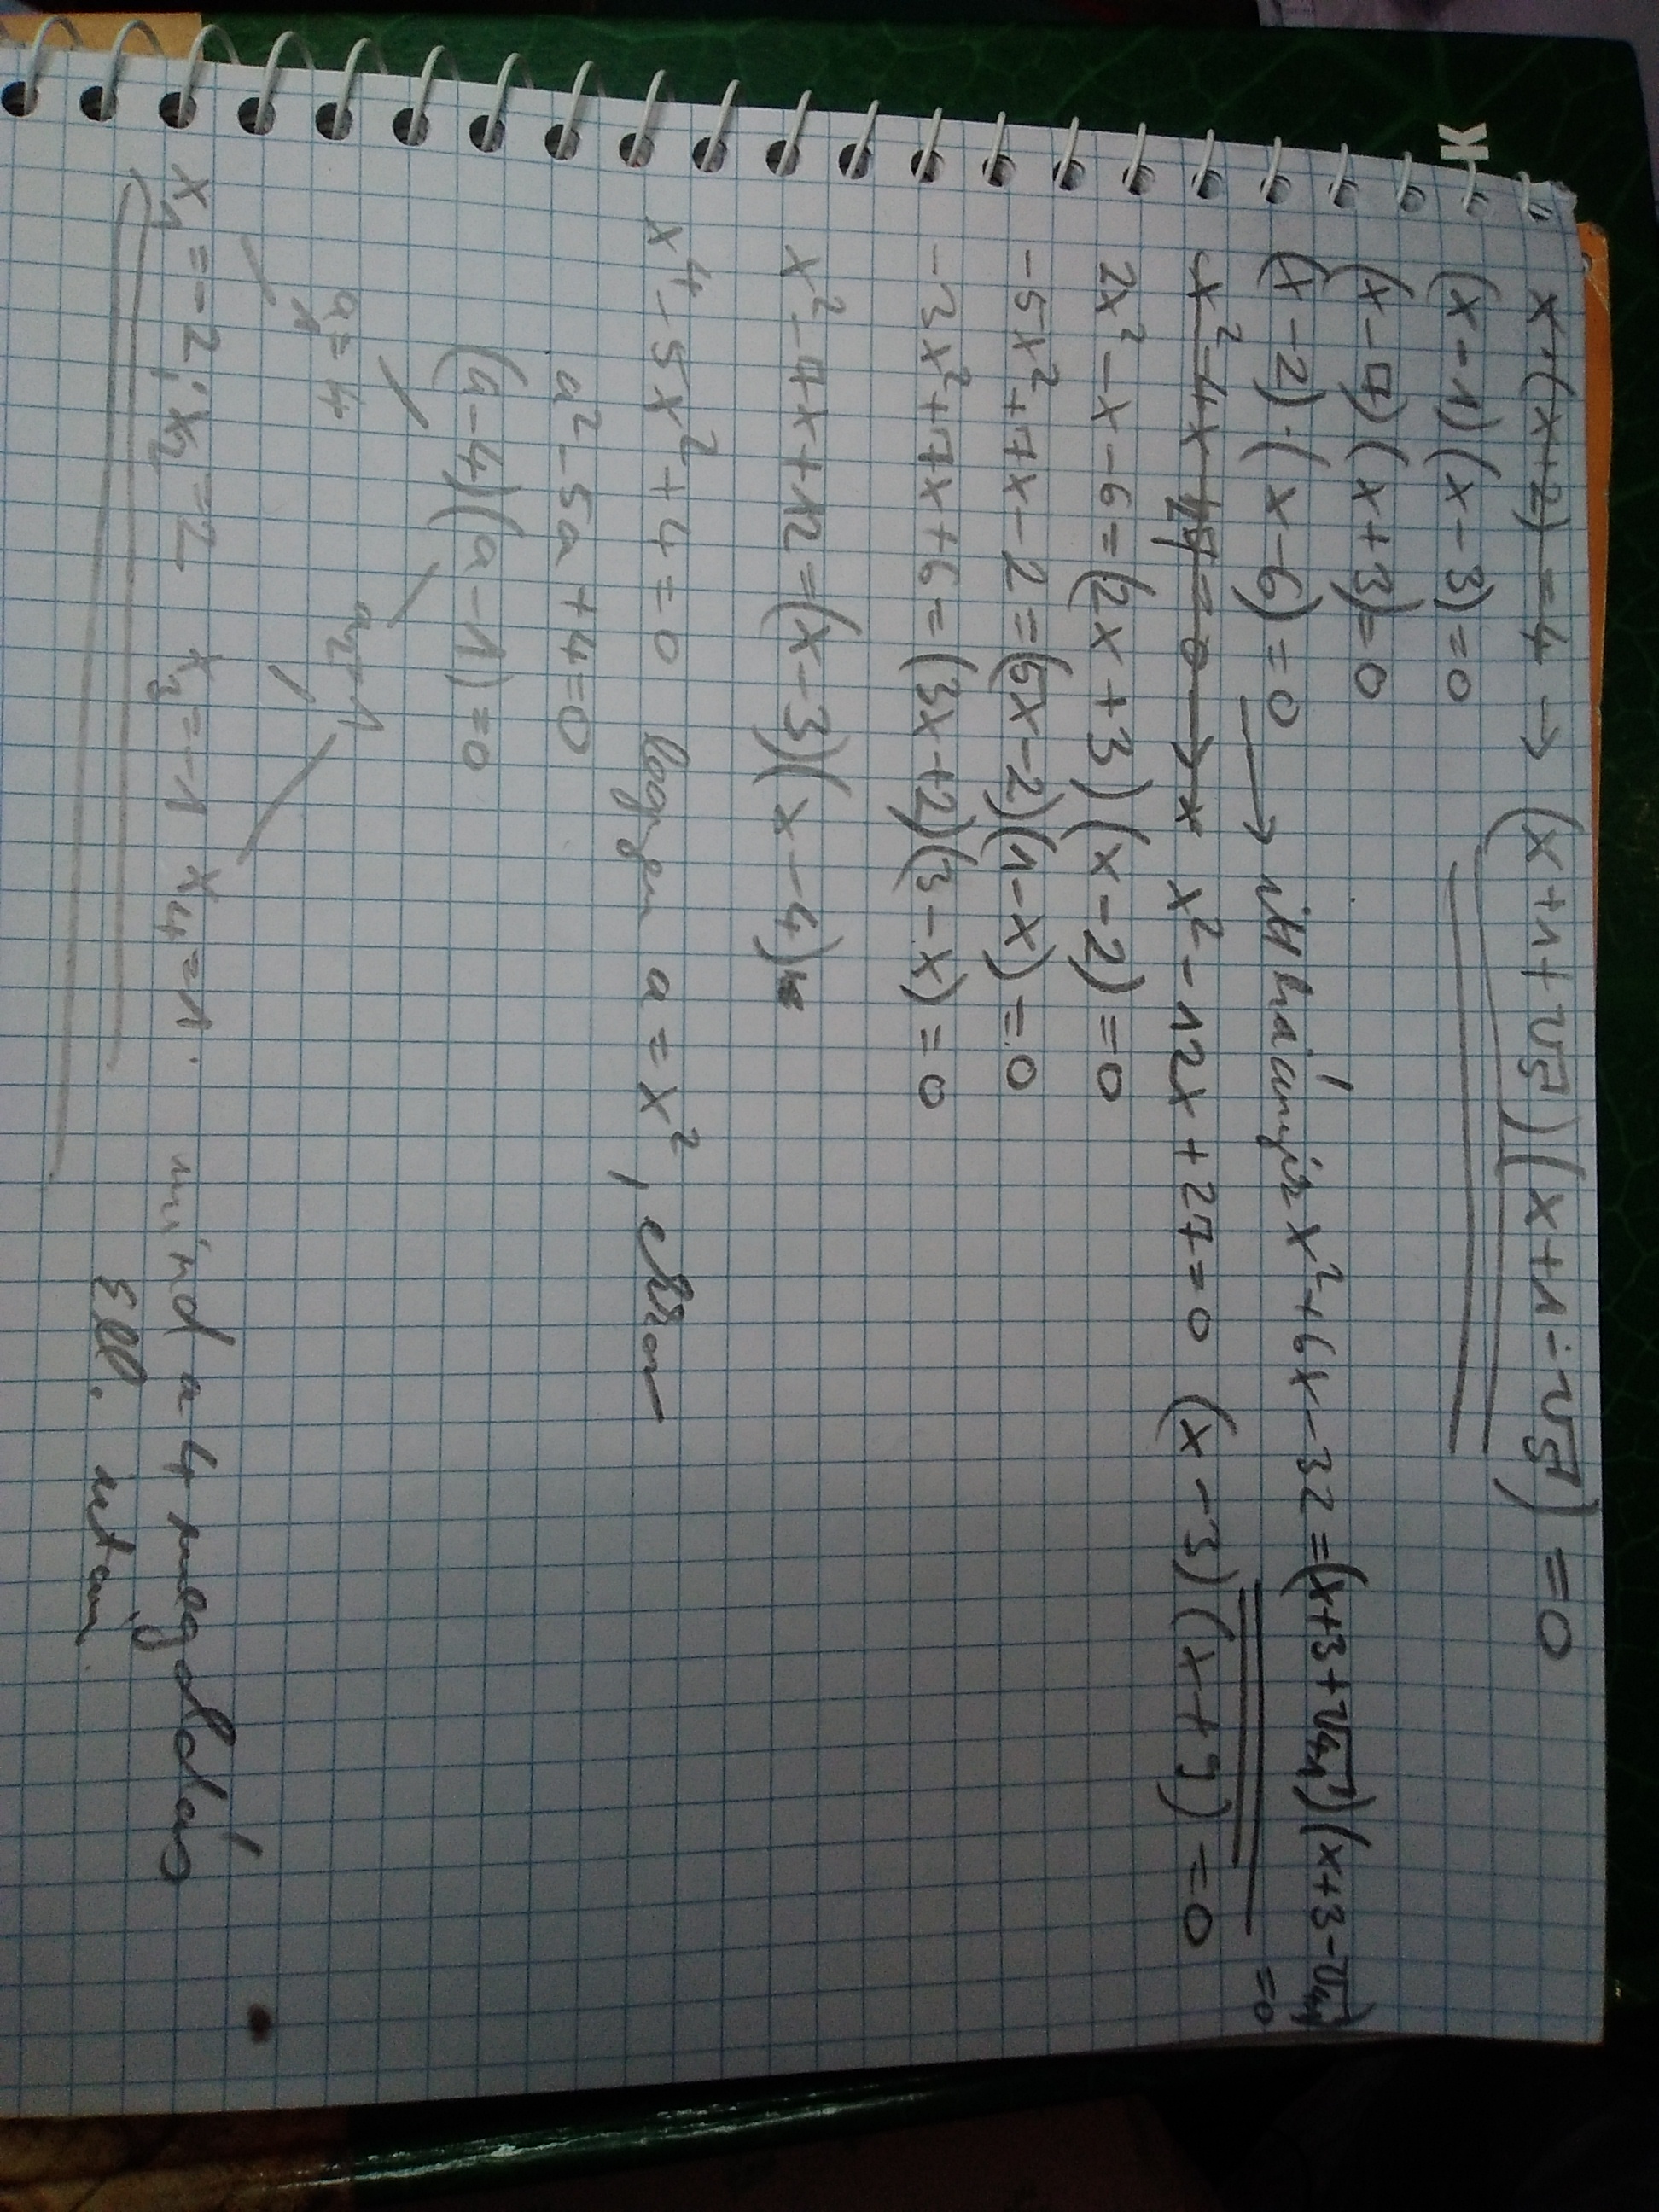 K
x·(x+2) = 4 → (x+1+√5)(x+1-√5) = 0
(x-1)(x-3)=0
(x-7)(x+3)=0
(x-2)·(x-6)=0 → itt hiányzik x²+6x-32 =(x+3+√41)(x+3-√41) =0
x²-4x =0 → x x²-12x+27=0 (x-3)(x+9)=0
2x²-x-6=(2x+3)(x-2)=0
-5x²+7x-2=(5x-2)(1-x)=0
-3x²+7x+6=(3x+2)(3-x)=0
x²-4x+12=(x-3)(x-4)
x⁴-5x²+4=0 legyen a=x², ekkor
a²-5a+4=0
(a-4)(a-1)=0
a₁=4 a₂=1
x₁=-2; x₂=2 x₃=-1 x₄=1. mind a 4 megoldás
Ell. után